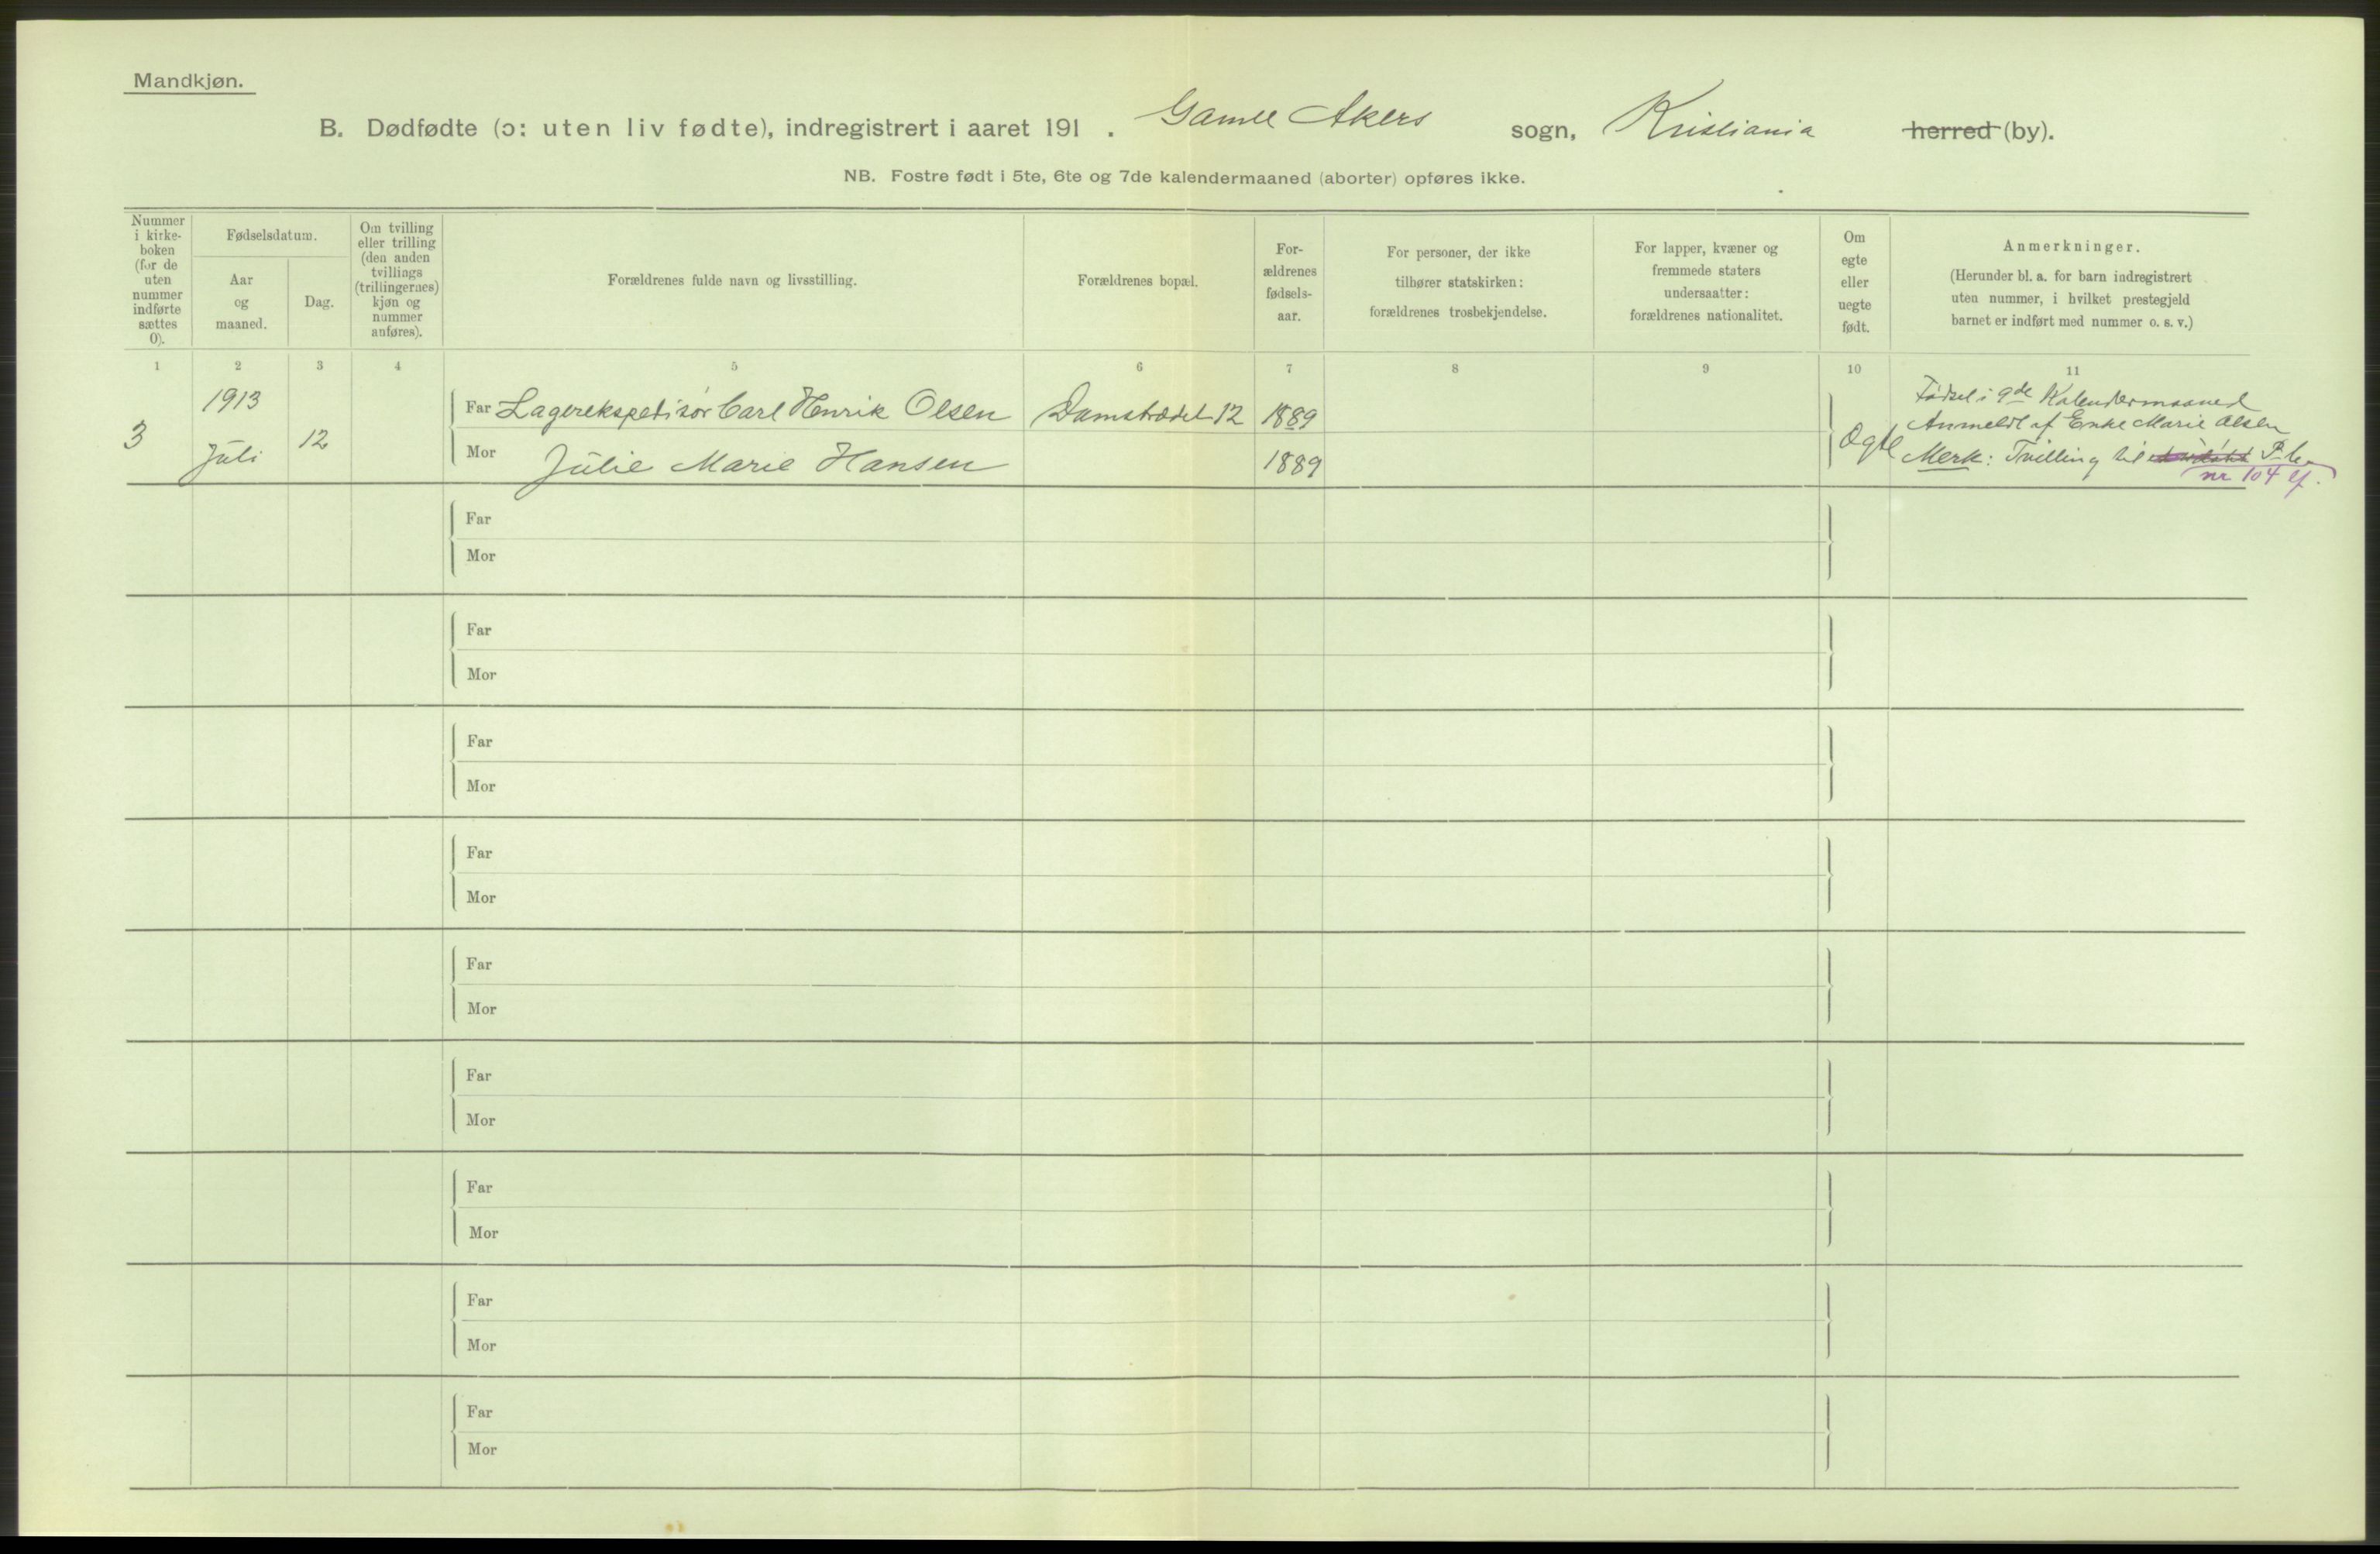 Mandkjøn.
B. Dødfødte (ɔ: uten liv fødte), indregistrert i aaret 191 . Gamle Akers sogn, Kristiania herred (by).
NB. Fostre født i 5te, 6te og 7de kalendermaaned (aborter) opføres ikke.
Nummer
i kirke-
boken
(for de
uten
nummer
indførte
sættes
0).
Fødselsdatum.
Aar
og
maaned.
Dag.
Om tvilling
eller trilling
(den anden
tvillings
(trillingernes)
kjøn og
nummer
anføres).
Forældrenes fulde navn og livsstilling.
Forældrenes bopæl.
For-
ældrenes
fødsels-
aar.
For personer, der ikke
tilhører statskirken:
forældrenes trosbekjendelse.
For lapper, kvæner og
fremmede staters
undersaatter:
forældrenes nationalitet.
Om
egte
eller
uegte
født.
Anmerkninger.
(Herunder bl. a. for barn indregistrert
uten nummer, i hvilket prestegjeld
barnet er indført med nummer o. s. v.)
1 2 3 4 5 6 7 8 9 10 11
3
1913
Juli
12
Far Lagerekspeditør Carl Henrik Olsen
Damstrædet 12
1889
Mor Julie Marie Hansen
1889
Ogte
Fødsel i 9de Kalendermaaned
Anmeldt af Enke Marie Olsen
Merk: Tvilling til
nr 104
Far
Mor
Far
Mor
Far
Mor
Far
Mor
Far
Mor
Far
Mor
Far
Mor
Far
Mor
Far
Mor